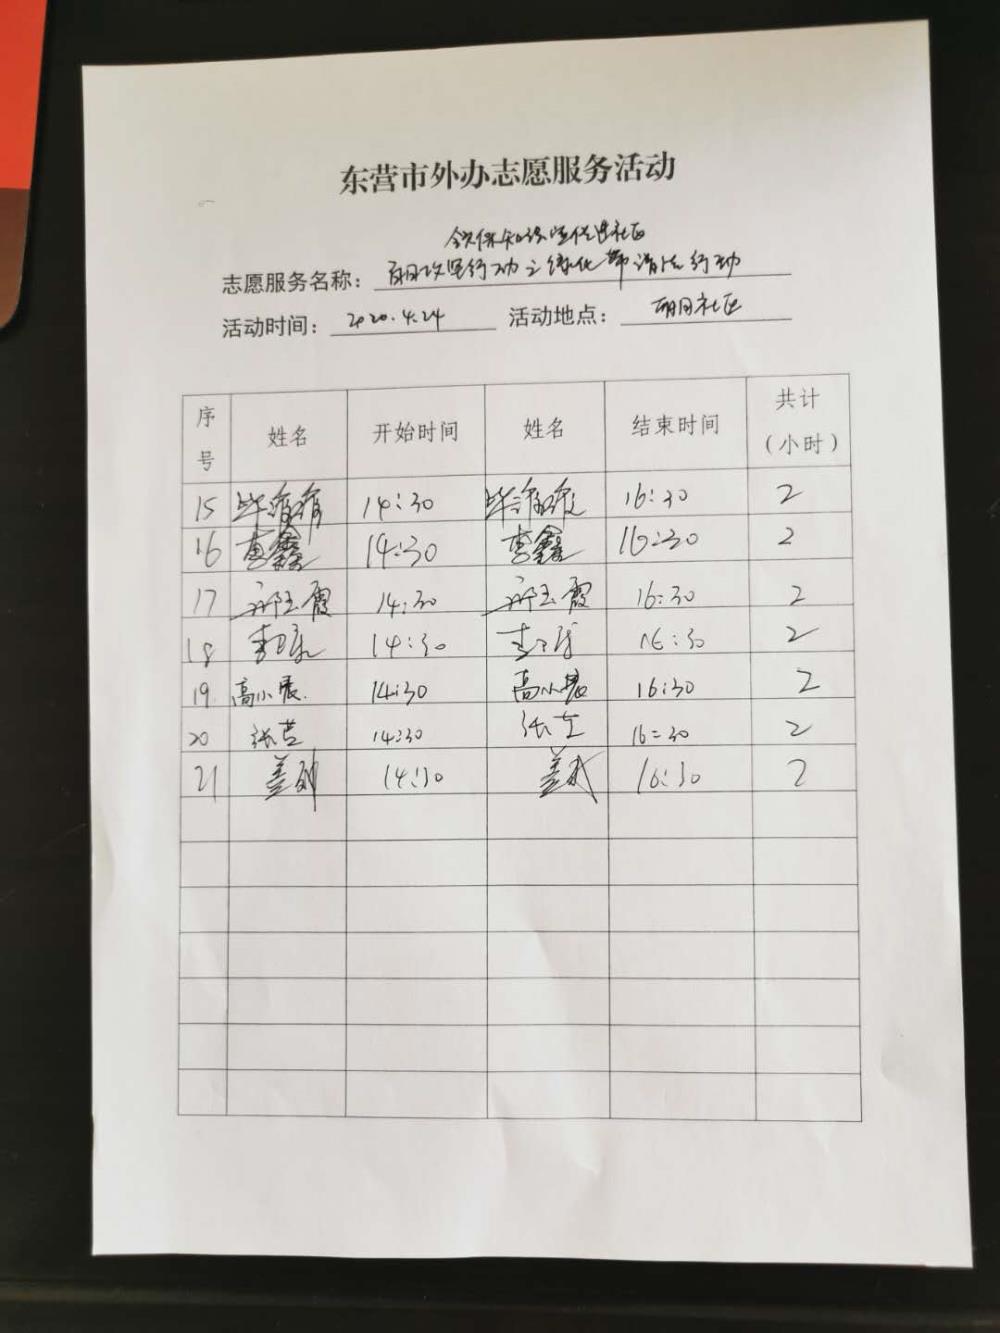 东营市外办志愿服务活动
领保知识宣传进社区
志愿服务名称： 攻坚行动之绿化带清洁行动
活动时间： 2020.4.24 活动地点： 社区
序号 姓名 开始时间 姓名 结束时间 共计（小时）
15 毕 14:30 毕 16:30 2
16 李鑫 14:30 李鑫 16:30 2
17 玉霞 14:30 玉霞 16:30 2
18 李 14:30 李 16:30 2
19. 高小晨. 14:30 高小晨 16:30 2
20 张 14:30 张 16:30 2
21 姜 14:30 姜 16:30 2